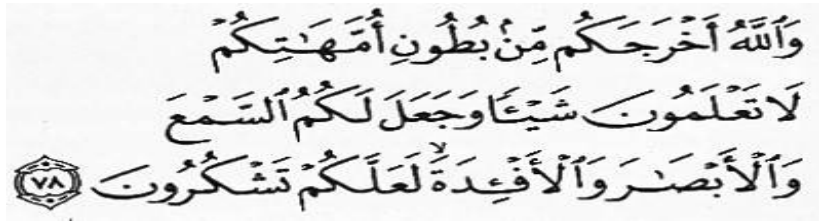 وَٱللَّهُ أَخْرَجَكُم مِّنۢ بُطُونِ أُمَّهَٰتِكُمْ
لَا تَعْلَمُونَ شَيْـًٔا وَجَعَلَ لَكُمُ ٱلسَّمْعَ
وَٱلْأَبْصَٰرَ وَٱلْأَفْـِٔدَةَ ۙ لَعَلَّكُمْ تَشْكُرُونَ ﴿٧٨﴾